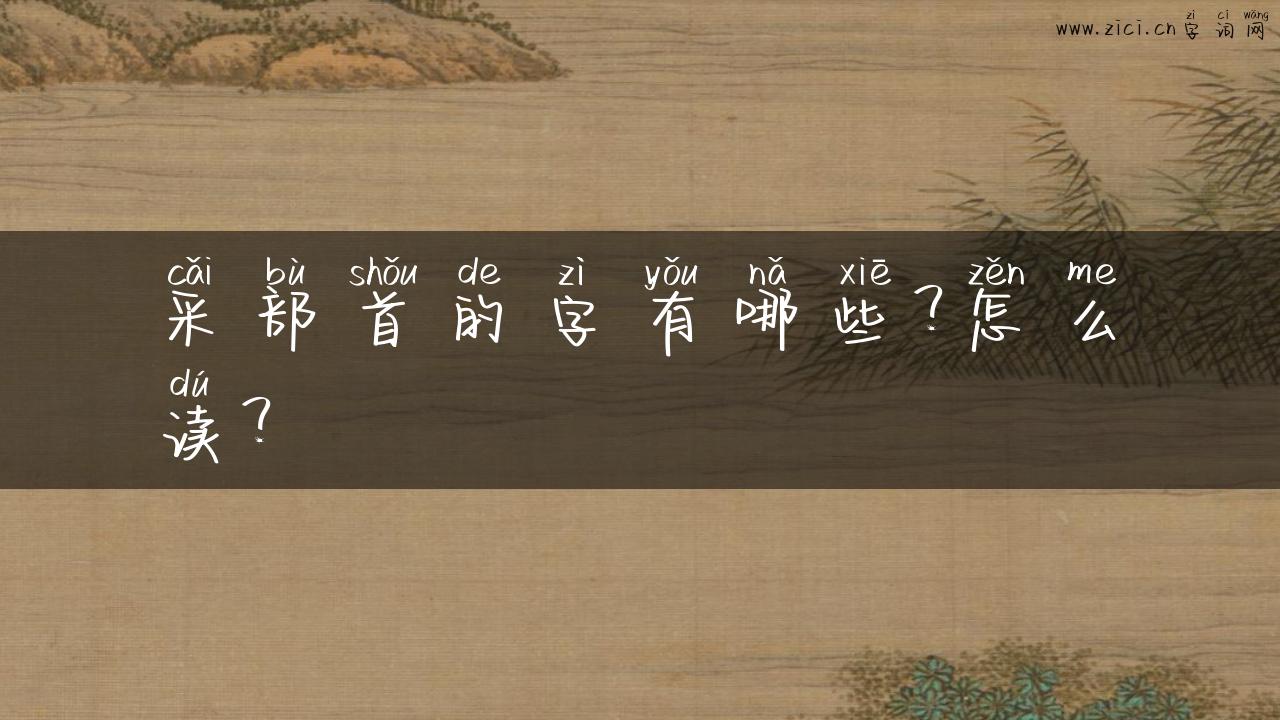 zì cí wǎng
www.zici.cn 字词网
cǎi bù shǒu de zì yǒu nǎ xiē zěn me
采部首的字有哪些？怎么
dú
读？